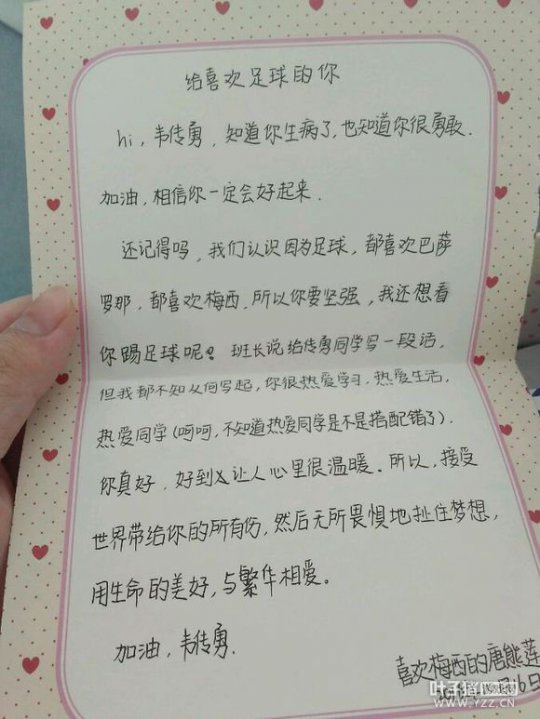 给喜欢足球的你
hi,韦传勇,知道你生病了,也知道你很勇敢.
加油,相信你一定会好起来.
还记得吗,我们认识因为足球,都喜欢巴萨
罗那,都喜欢梅西,所以你要坚强,我还想看
你踢足球呢。班长说给传勇同学写一段话,
但我都不知从何写起,你很热爱学习,热爱生活,
热爱同学(呵呵,不知道热爱同学是不是搭配错了).
你真好,好到让人心里很温暖。所以,接受
世界带给你的所有伤,然后无所畏惧地扯住梦想,
用生命的美好,与繁华相爱。
加油,韦传勇.
喜欢梅西的唐能莲
16日
叶子猪游戏网
WWW.YZZ.CN